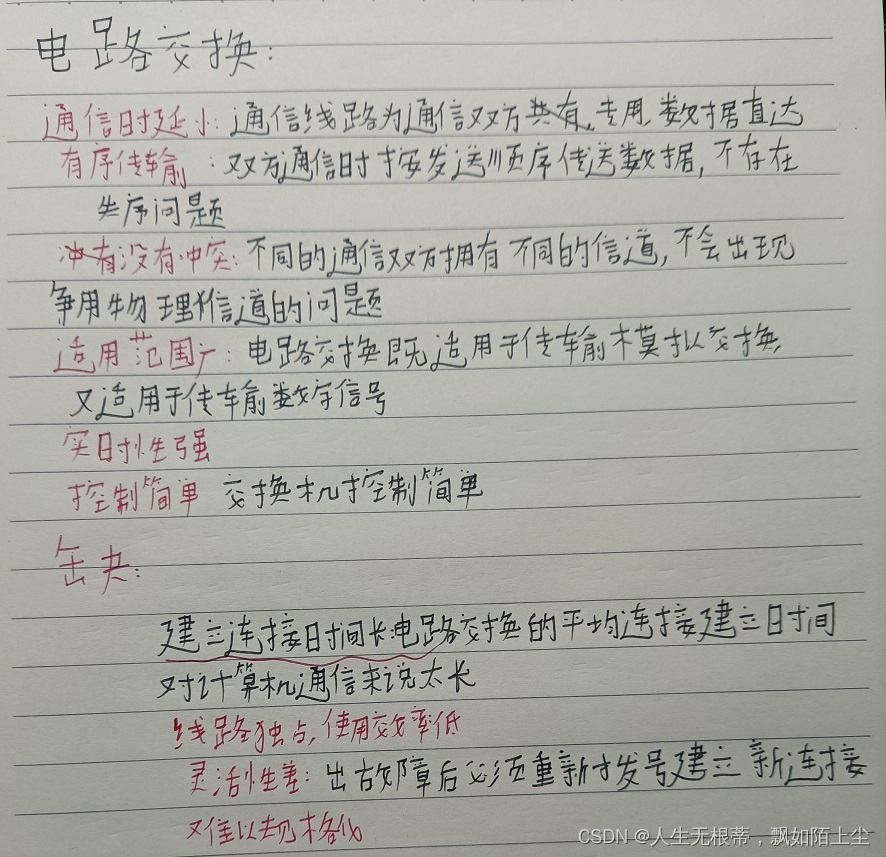 电路交换:
通信时延小:通信线路为通信双方共有,专用,数据直达
有序传输:双方通信时按发送顺序传送数据,不存在
失序问题
冲有没有冲突:不同的通信双方拥有不同的信道,不会出现
争用物理信道的问题
适用范围广:电路交换既适用于传输模拟交换,
又适用于传输数字信号
实时性强
控制简单 交换机控制简单
缺夬:
建立连接时间长:电路交换的平均连接建立时间
对计算机通信来说太长
线路独占,使用效率低
灵活性差:出故障后必须重新拨号建立新连接
难以规格化
CSDN @人生无根蒂,飘如陌上尘